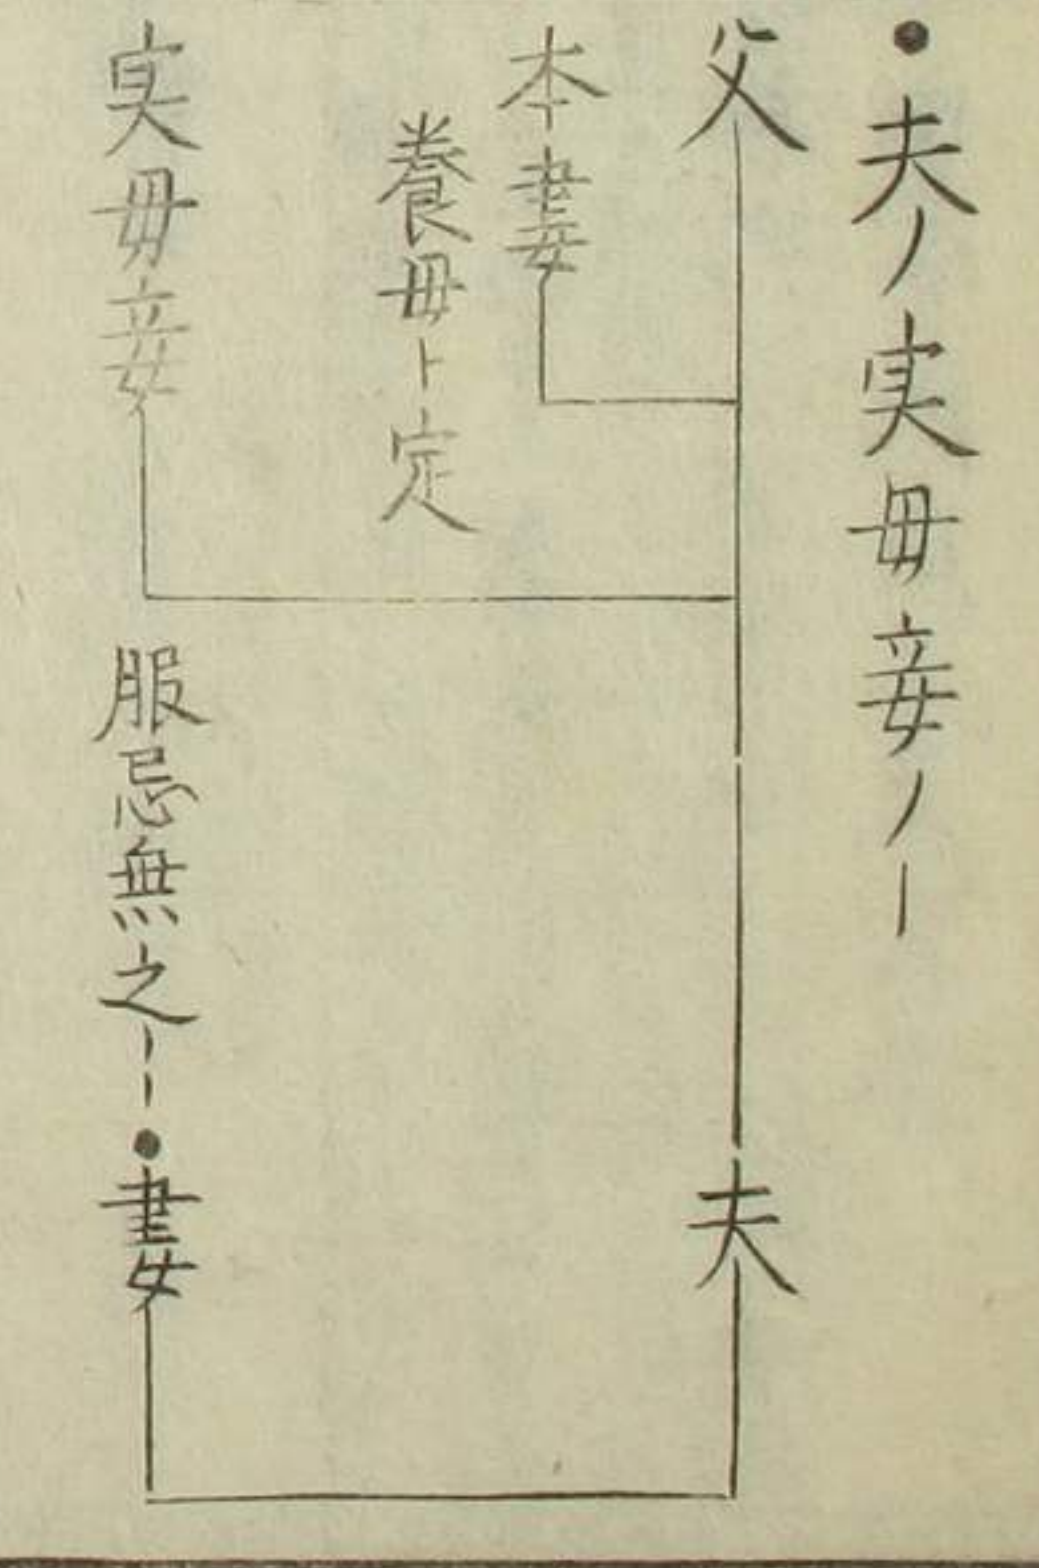 ●夫ノ実母妾ノー
父
本妻
養母ト定
実母妾
夫
服忌無之ーー●妻